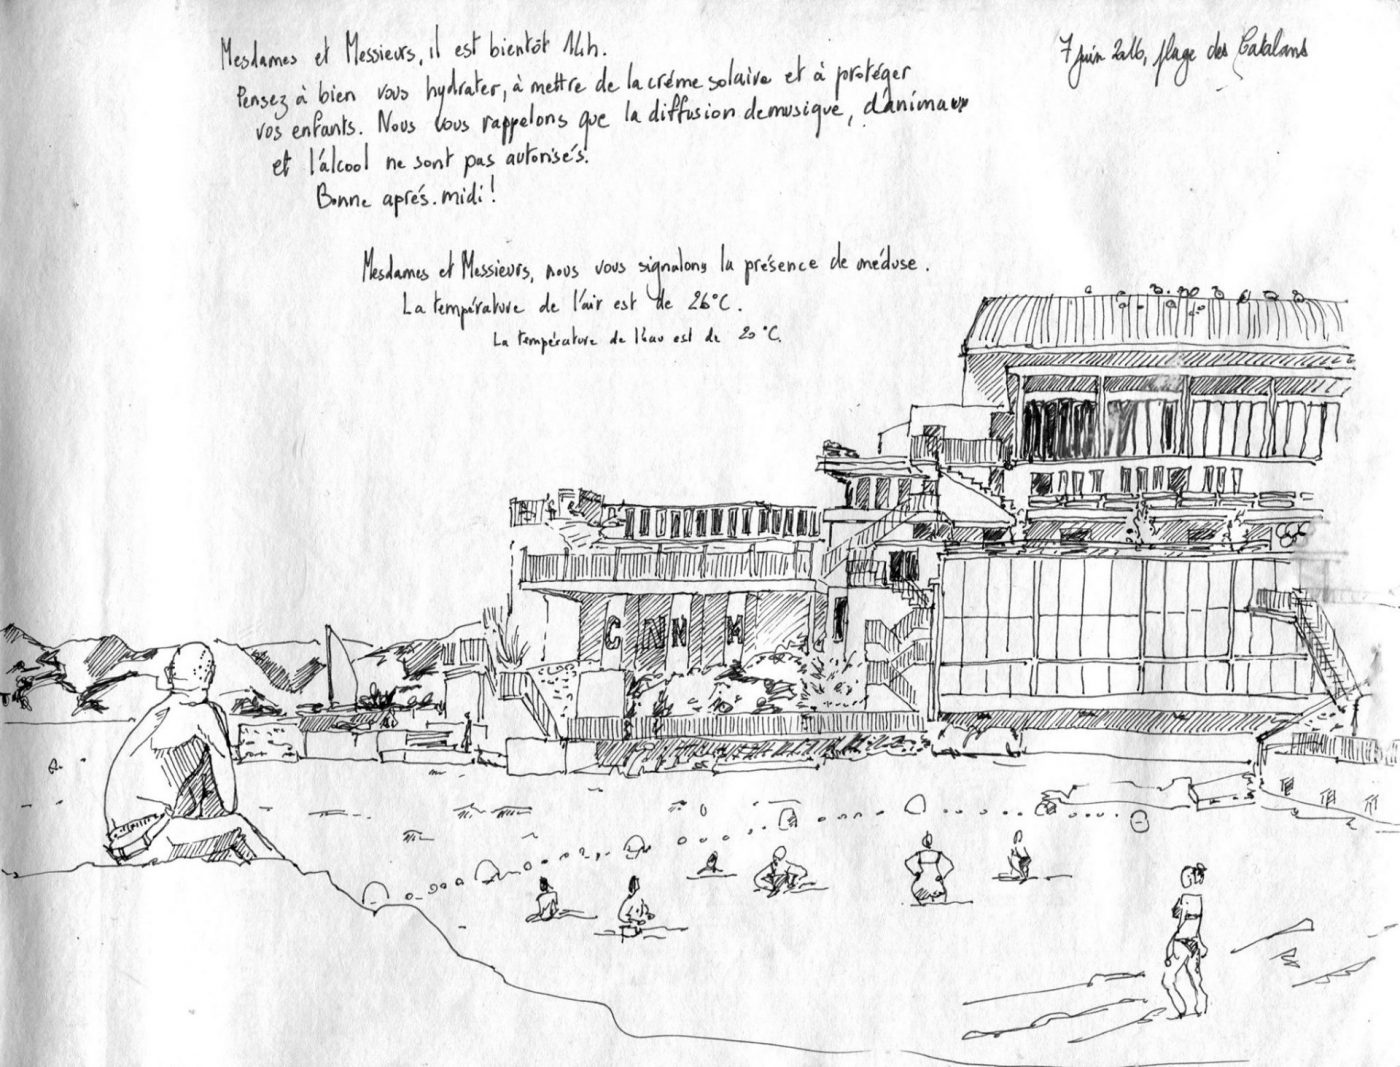 7 juin 2016, plage des Catalans
Mesdames et Messieurs, il est bientôt 14h.
Pensez à bien vous hydrater, à mettre de la créme solaire et à protéger
vos enfants. Nous vous rappelons que la diffusion de musique, d'animaux
et l'alcool ne sont pas autorisés.
Bonne aprés-midi!
Mesdames et Messieurs, nous vous signalons la présence de méduse.
La température de l'air est de 26°C.
La température de l'eau est de 20°C.
CNM